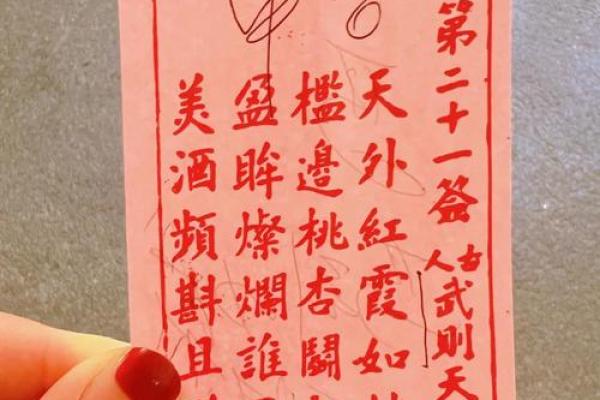 第二十一签 古人 武則天
天外紅霞如
檻邊桃杏鬪
盈眸燦爛誰
美酒頻斟且